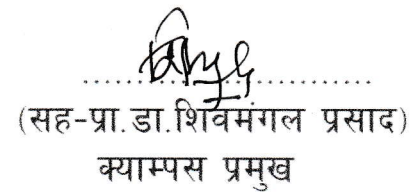 (सह-प्रा.डा.शिवमंगल प्रसाद)
क्याम्पस प्रमुख